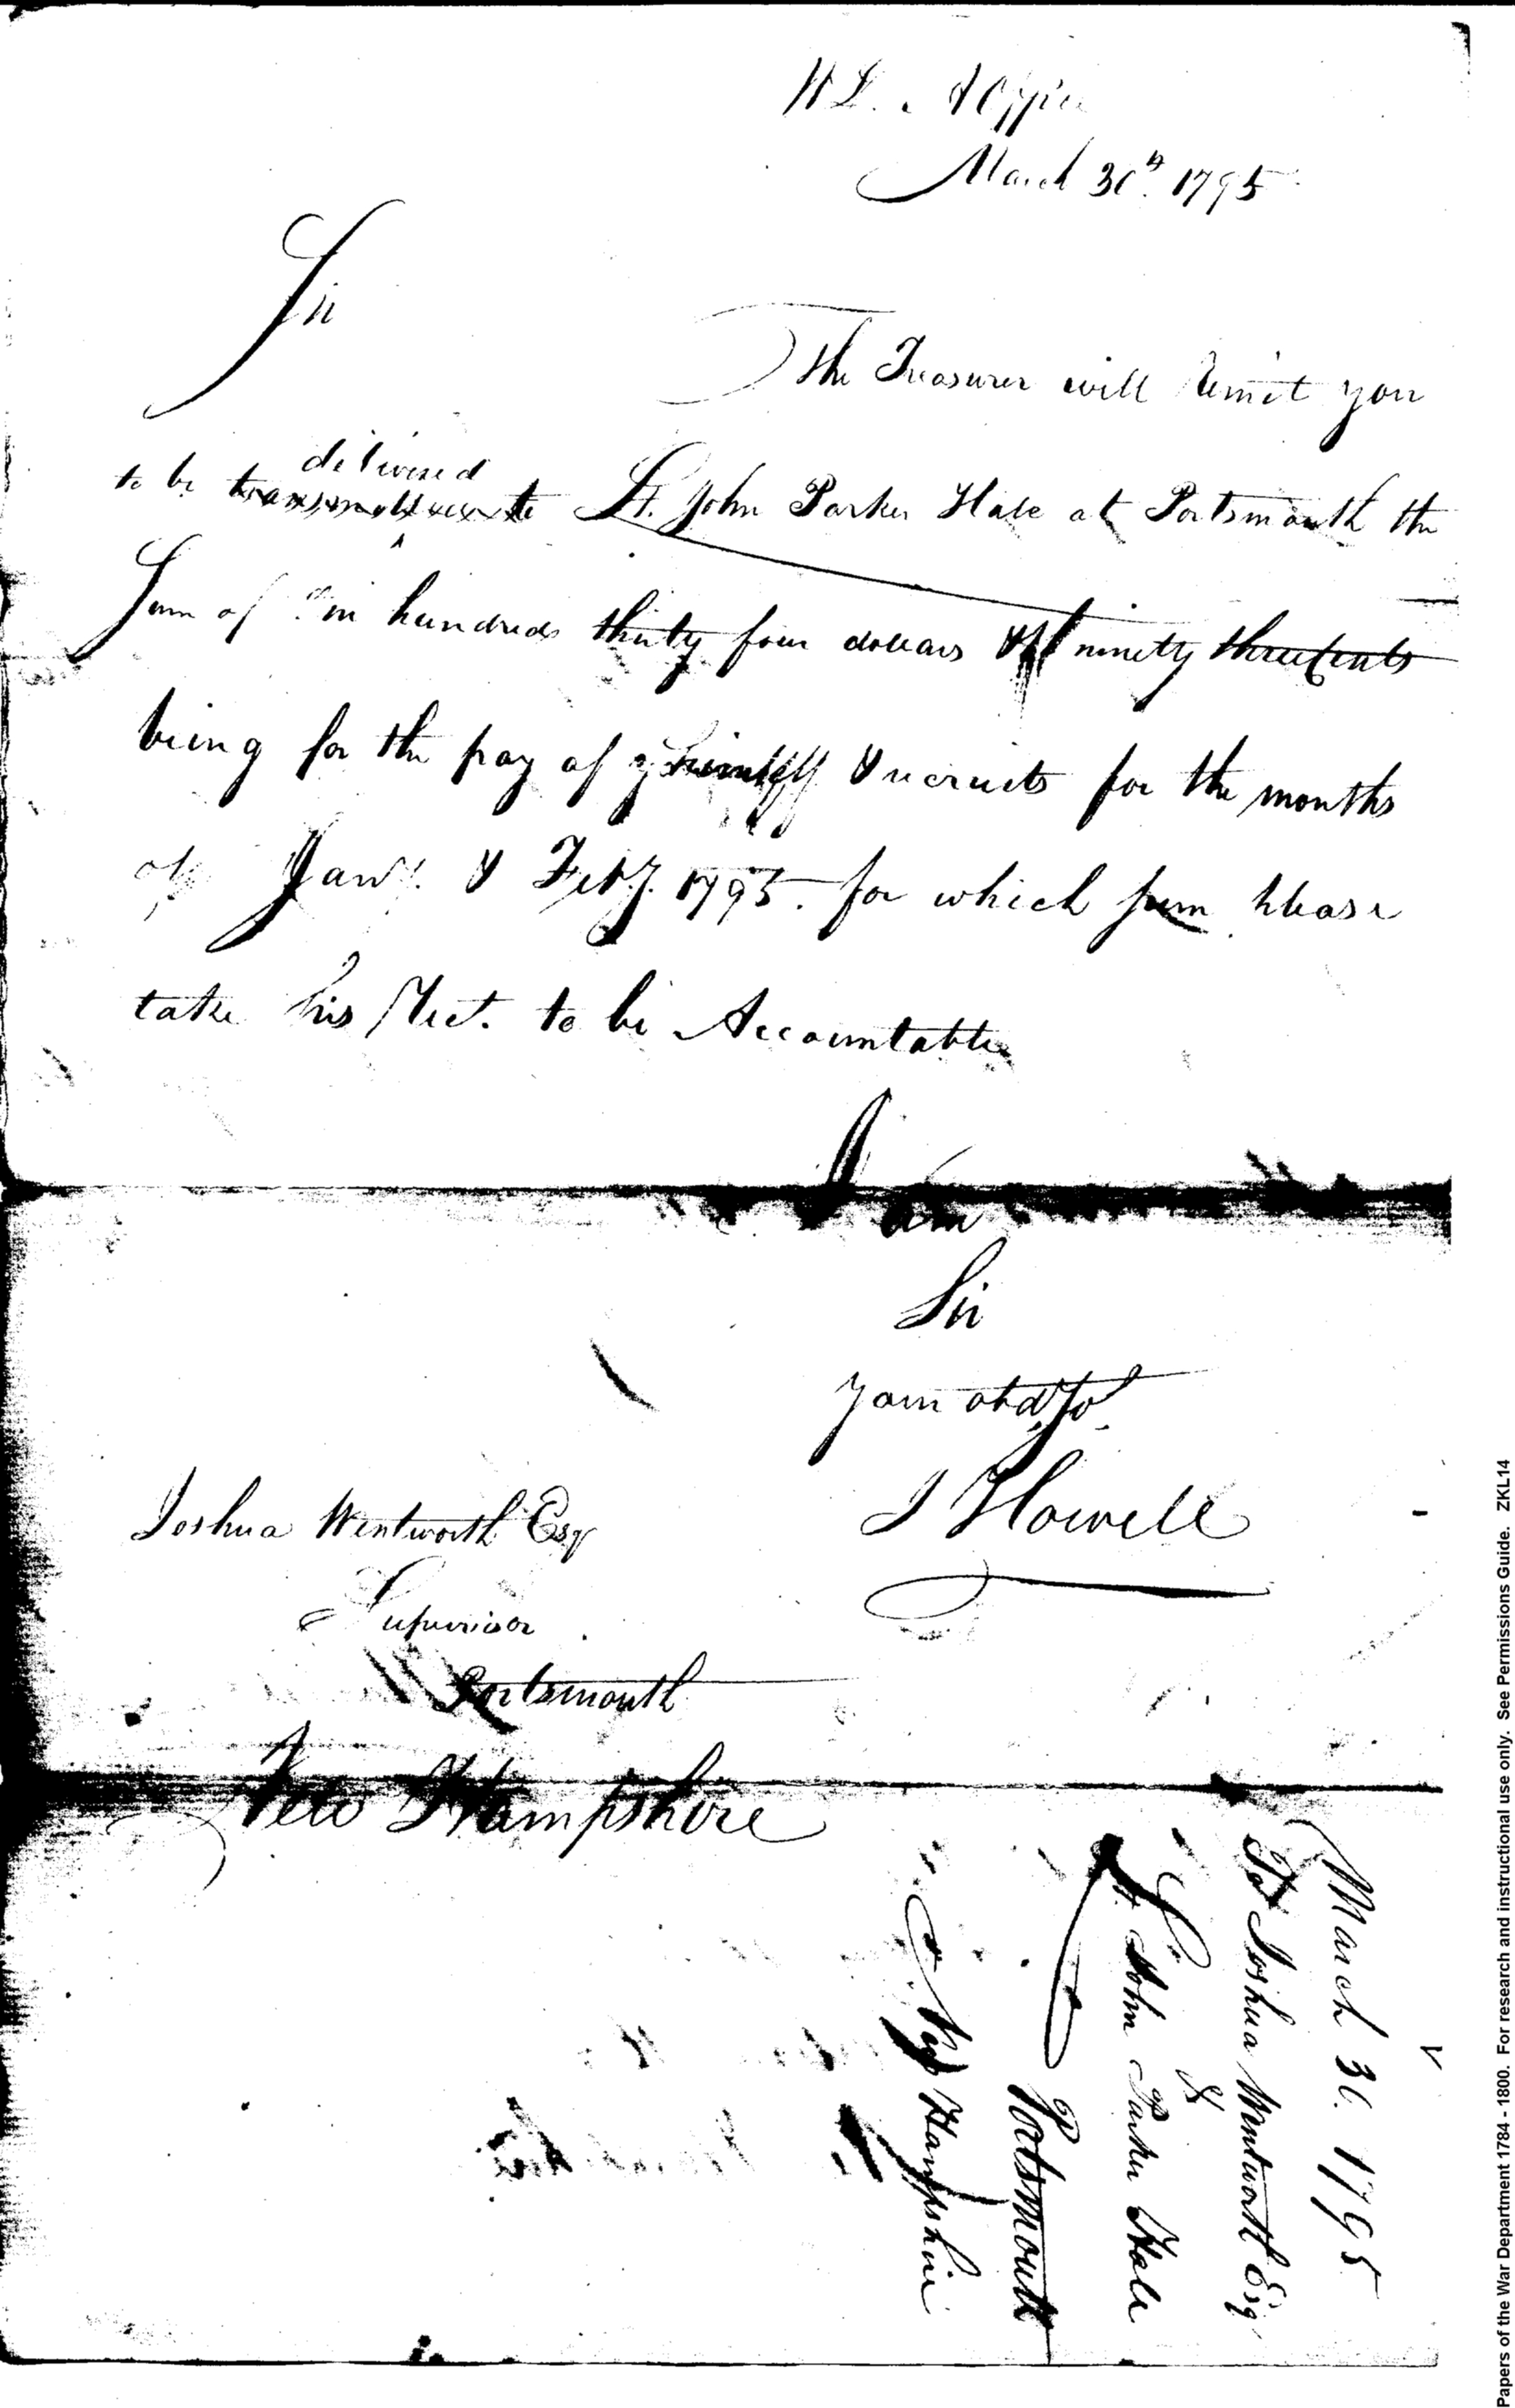 March 30th. 1795
Sir
The Treasurer will remit you
delivered
to be transmitted to Lt. John Parker Hale at Portsmouth the
Sum of hundred thirty four dollars & ninety three Cents
being for the pay of himself & recruits for the months
of Jany. & Feby. 1795. for which sum please
take his Rect. to be Accountable
I am
Sir
Your obdt. St.
J Howell
Joshua Wentworth Esqr
Supervisor
Portsmouth
New Hampshire
March 30. 1795
To Joshua Wentworth Esq
&
Lt. John Parker Hale
Portsmouth
New Hampshire
Papers of the War Department 1784 - 1800. For research and instructional use only. See Permissions Guide. ZKL14